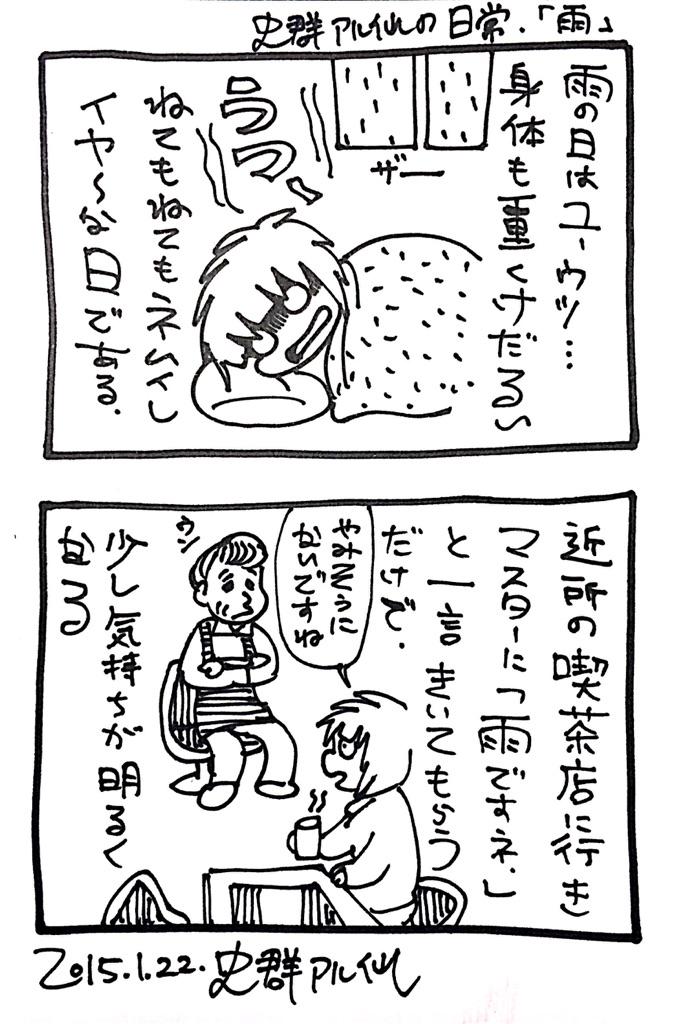 史群アル仙の日常.「雨」
雨の日はユーウツ…
身体も重くけだるい
ザー
ううっ、
ねてもねてもネムイし
イヤ〜な日である.
近所の喫茶店に行き
マスターに「雨ですネ.」
と一言きいてもらう
だけで.
やみそうに
ないですね
ウン
少し気持ちが明るく
なる
2015.1.22.史群アル仙